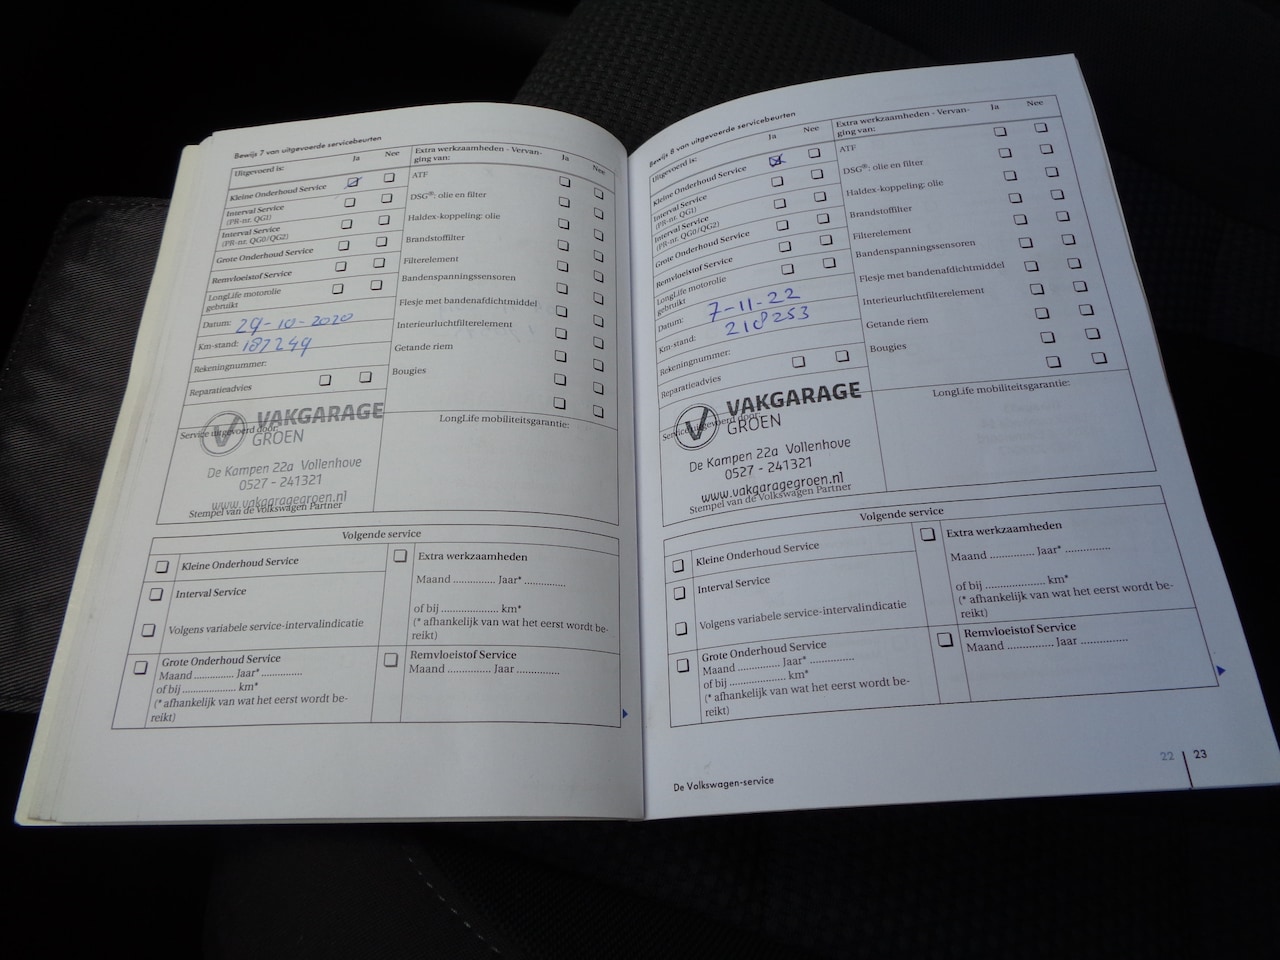 Bewijs 7 van uitgevoerde servicebeurten
Uitgevoerd is:
Ja
Nee
Kleine Onderhoud Service
Interval Service
(PR-nr. QG1)
Interval Service
(PR-nr. QG0/QG2)
Grote Onderhoud Service
Remvloeistof Service
LongLife motorolie
gebruikt
Datum: 29-10-2020
Km-stand: 187249
Rekeningnummer:
Reparatieadvies
Service uitgevoerd door:
VAKGARAGE
GROEN
De Kampen 22a Vollenhove
0527 - 241321
www.vakgaragegroen.nl
Stempel van de Volkswagen Partner
Extra werkzaamheden - Vervan-
ging van:
Ja
Nee
ATF
DSG®: olie en filter
Haldex-koppeling: olie
Brandstoffilter
Filterelement
Bandenspanningssensoren
Flesje met bandenafdichtmiddel
Interieurluchtfilterelement
Getande riem
Bougies
LongLife mobiliteitsgarantie:
Volgende service
Kleine Onderhoud Service
Interval Service
Volgens variabele service-intervalindicatie
Grote Onderhoud Service
Maand .............. Jaar* ..............
of bij .................... km*
(* afhankelijk van wat het eerst wordt be-
reikt)
Extra werkzaamheden
Maand .............. Jaar* ..............
of bij .................... km*
(* afhankelijk van wat het eerst wordt be-
reikt)
Remvloeistof Service
Maand .............. Jaar ..............
Bewijs 8 van uitgevoerde servicebeurten
Uitgevoerd is:
Ja
Nee
Kleine Onderhoud Service
Interval Service
(PR-nr. QG1)
Interval Service
(PR-nr. QG0/QG2)
Grote Onderhoud Service
Remvloeistof Service
LongLife motorolie
gebruikt
Datum: 7-11-22
Km-stand: 218253
Rekeningnummer:
Reparatieadvies
Service uitgevoerd door:
VAKGARAGE
GROEN
De Kampen 22a Vollenhove
0527 - 241321
www.vakgaragegroen.nl
Stempel van de Volkswagen Partner
Extra werkzaamheden - Vervan-
ging van:
Ja
Nee
ATF
DSG®: olie en filter
Haldex-koppeling: olie
Brandstoffilter
Filterelement
Bandenspanningssensoren
Flesje met bandenafdichtmiddel
Interieurluchtfilterelement
Getande riem
Bougies
LongLife mobiliteitsgarantie:
Volgende service
Kleine Onderhoud Service
Interval Service
Volgens variabele service-intervalindicatie
Grote Onderhoud Service
Maand .............. Jaar* ..............
of bij .................... km*
(* afhankelijk van wat het eerst wordt be-
reikt)
Extra werkzaamheden
Maand .............. Jaar* ..............
of bij .................... km*
(* afhankelijk van wat het eerst wordt be-
reikt)
Remvloeistof Service
Maand .............. Jaar ..............
De Volkswagen-service
22 | 23